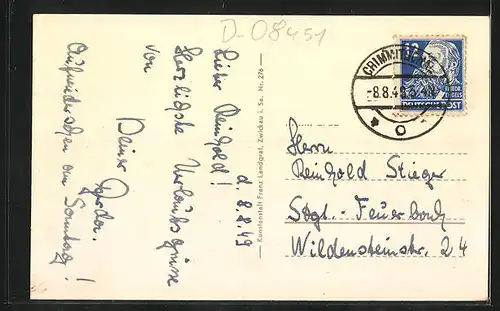 D-08451
d. 8.8.49
Lieber Reinhold!
Herzlichste Urlaubsgrüsse
von
Deiner Gerda.
Aufwiedersehen am Sonntag!
Kunstanstalt Franz Landgraf, Zwickau i. Sa. Nr. 276
12
FRIEDR. ENGELS
DEUTSCHE POST
-8.8.49
Herrn
Reinhold Stieger
Sdgt.-Feuerbach
Wildensteinstr. 24